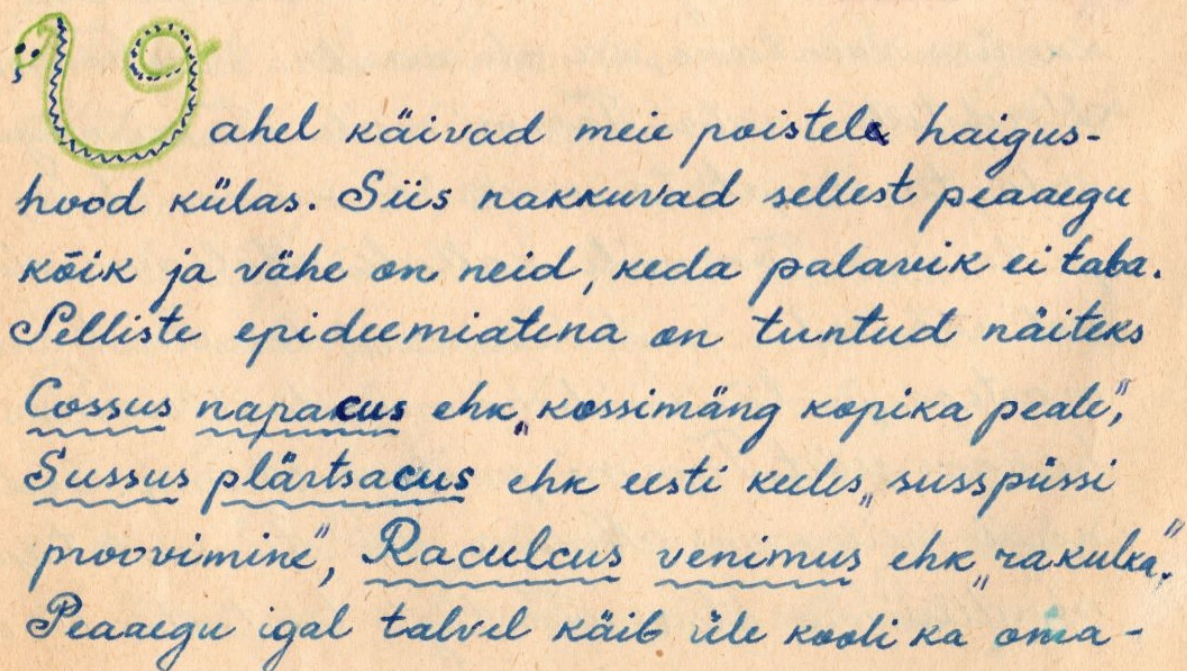 Vahel käivad meie poistele haigus-
hood külas. Siis nakkuvad sellest peaaegu
kõik ja vähe on neid, keda palavik ei taba.
Selliste epideemiatena on tuntud näiteks
Cossus napacus ehk „kossimäng kopika peale",
Sussus plärtsacus ehk eesti keeles „susspüssi
proovimine", Raculcus venimus ehk „rakulka".
Peaaegu igal talvel käib üle kooli ka oma-